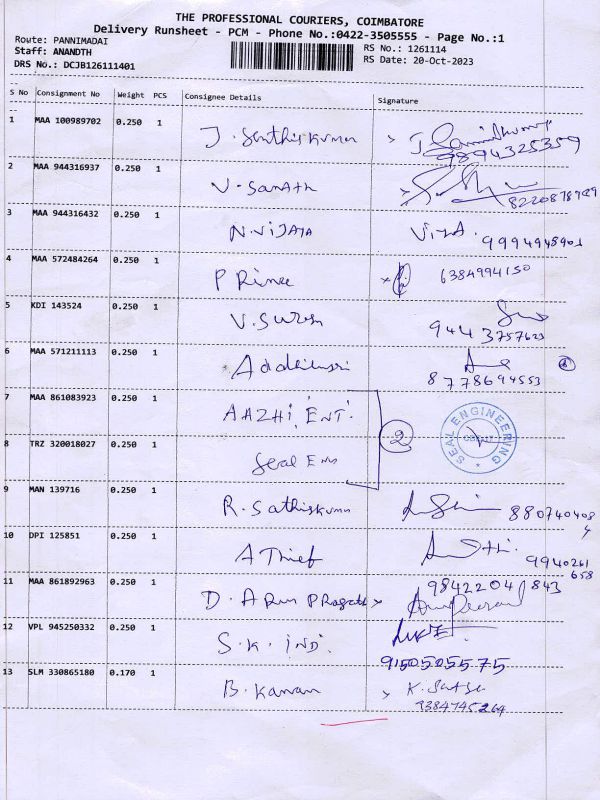 THE PROFESSIONAL COURIERS, COIMBATORE
Delivery Runsheet - PCM - Phone No.:0422-3505555 - Page No.:1
Route: PANNIMADAI
Staff: ANANDTH
DRS No.: DCJB126111401
RS No.: 1261114
RS Date: 20-Oct-2023
S No Consignment No Weight PCS Consignee Details Signature
1 MAA 100989702 0.250 1 J. Senthis Kumar
9894325359
2 MAA 944316937 0.250 1 V. Sanath
3 MAA 944316432 0.250 1 N. VIJAYA 9994948901
4 MAA 572484264 0.250 1 P Rince 6384994150
5 KDI 143524 0.250 1 V. Suresh
9443757623
6 MAA 571211113 0.250 1
8778694553
7 MAA 861083923 0.250 1 AAZHI ENT.
2
SEAL ENGINEERING
8 TRZ 320018027 0.250 1 Seal
9 MAN 139716 0.250 1 R. Sathiskumar 8807404084
10 DPI 125851 0.250 1 A Thief
9940261658
11 MAA 861892963 0.250 1 D. Arun 9842204843
12 VPL 945250332 0.250 1 S.K. IND.
9150525575
13 SLM 330865180 0.170 1 B. Kanan
9384745264